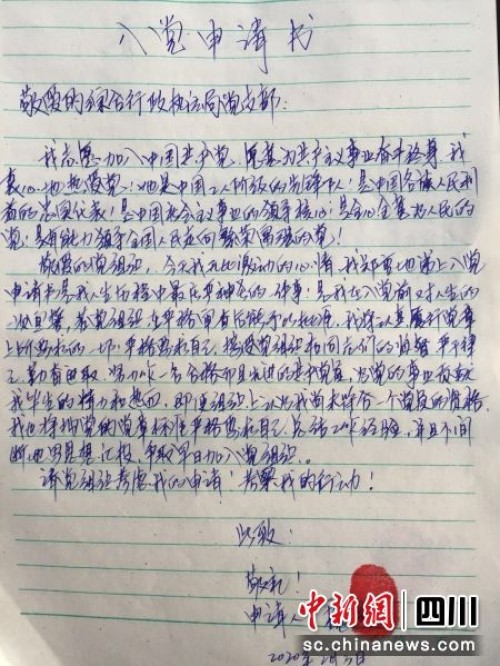 入党申请书
敬爱的综合行政执法局党支部:
我志愿加入中国共产党,愿意为共产主义事业奋斗终身。我
衷心地热爱党!她是中国工人阶级的先锋队!是中国各族人民利
益的忠实代表!是中国社会主义事业的领导核心!是全心全意为人民的
党!是有能力领导全国人民走向繁荣富强的党!
敬爱的党组织,今天我无比激动的心情,我郑重地递上入党
申请书是我人生历程中最庄严神圣的一件事!是我在入党前对人生的
一次自警,若党组织在严格审查后能予以批准,我将认真履行党章
上所要求的一切,严格要求自己,接受党组织和同志们的监督,严于律
己,勤奋进取,努力作一名合格而且先进的共产党员,为党的事业贡献
我毕生的精力和热血。即使组织上认为我尚未符合一个党员的资格,
我也将按党的党章标准严格要求自己,总结工作经验,并且不间
断地用思想汇报,争取早日加入党组织。
请党组织考虑我的申请!考察我的行动!
此致:
敬礼!
申请人
2020年2月3日
中新網 四川
sc.chinanews.com